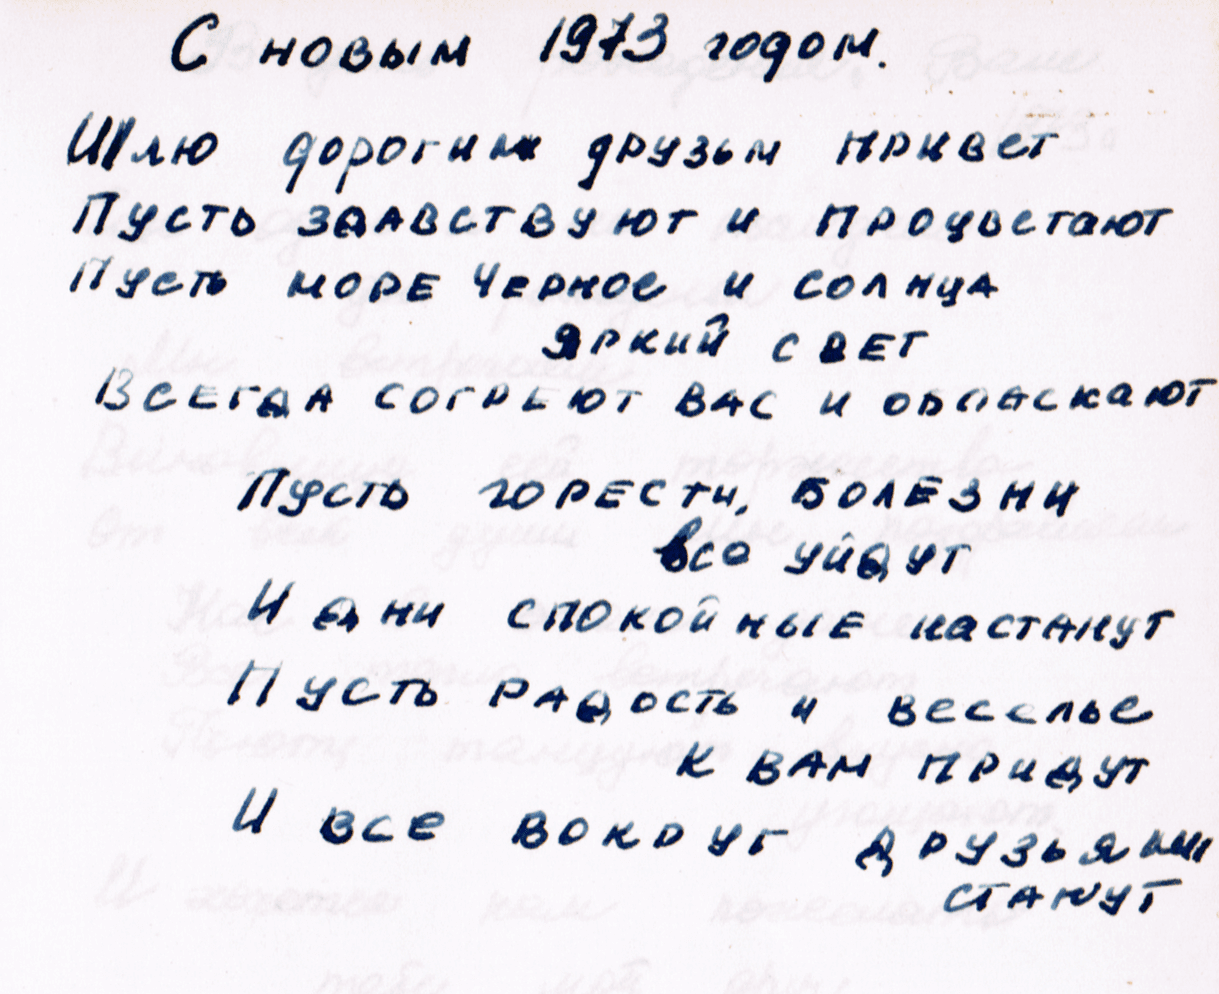 С новым 1973 годом.
Шлю дорогим друзьм привет
Пусть здавствуют и процветают
Пусть море Черное и солнца
яркий свет
Всегда согреют вас и обласкают
Пусть горести, болезни
все уйдут
И дни спокойные настанут
Пусть радость и веселье
к вам придут
И все вокруг друзьями
станут